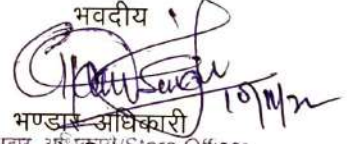 भवदीय
10/11/22
भण्डार अधिकारी
भण्डार अधिकारी/Store Officer